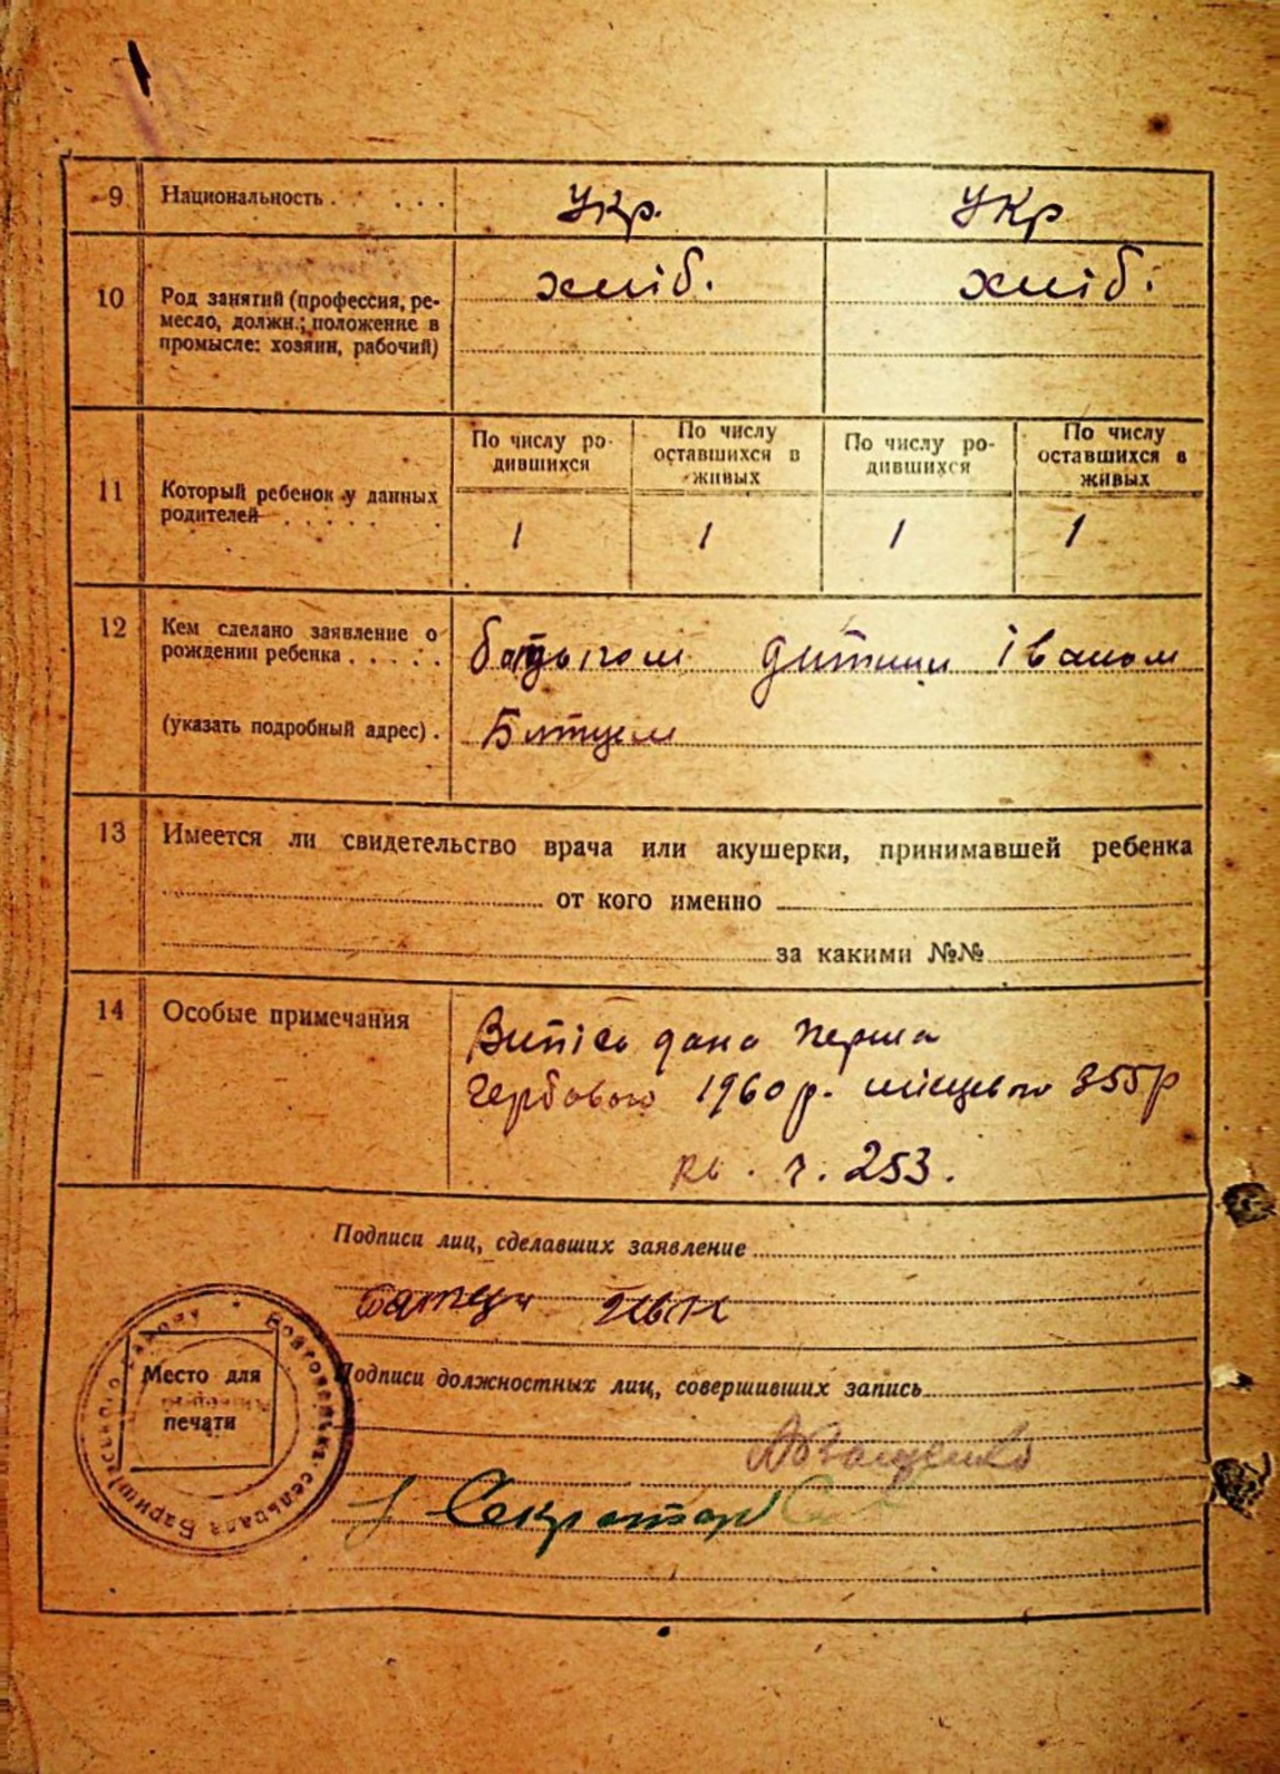 9 Национальность . . . . Укр. Укр
10 Род занятий (профессия, ре-
месло, должн.; положение в
промысле: хозяин, рабочий)
хліб. хліб.
11 Который ребенок у данных
родителей . . . . . .
По числу ро-
дившихся
По числу
оставшихся в
живых
По числу ро-
дившихся
По числу
оставшихся в
живых
1 1 1 1
12 Кем сделано заявление о
рождении ребенка . . . . .
(указать подробный адрес) .
батьком дитини Іваном
13 Имеется ли свидетельство врача или акушерки, принимавшей ребенка
от кого именно
за какими №№
14 Особые примечания
Випісь дана перша
гербового 1960р. місцевого 355р
кв. ч. 253.
Подписи лиц, сделавших заявление
Подписи должностных лиц, совершивших запись
Место для
печати
Секретар